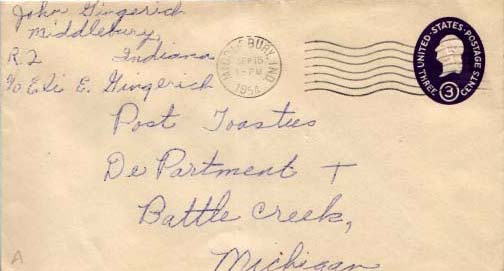 John Gingerich
Middlebury,
R. 2 Indiana
c/o Eli E. Gingerich
MIDDLEBURY, IND.
SEP 15
PM
1954
UNITED·STATES·POSTAGE
THREE 3 CENTS
Post Toasties
DePartment T
Battle Creek,
Michigan
A